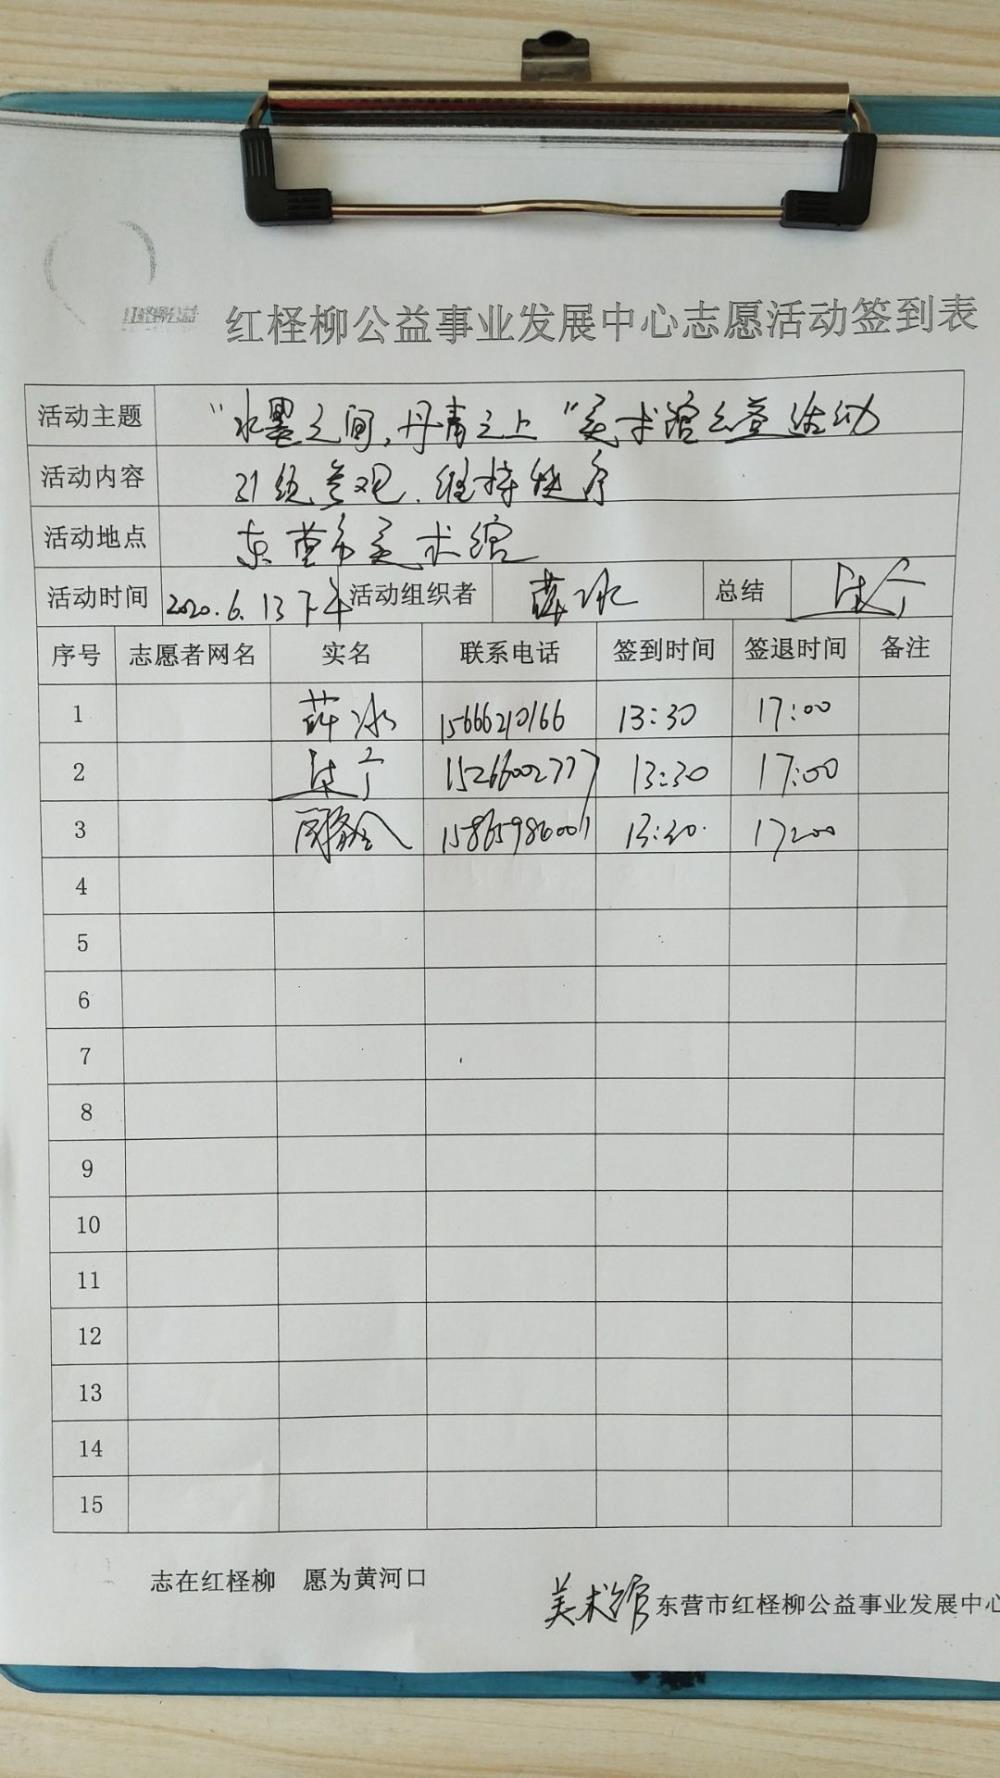 红柽柳公益
红柽柳公益事业发展中心志愿活动签到表
活动主题 “水墨之间,丹青之上”美术馆公益活动
活动内容 引领参观.维持秩序
活动地点 东营市美术馆
活动时间 2020.6.13下午 活动组织者 薛冰 总结
序号 志愿者网名 实名 联系电话 签到时间 签退时间 备注
1 薛冰 15666210166 13:30 17:00
2 15266002777 13:30 17:00
3 15865986001 13:30 17:00
4
5
6
7
8
9
10
11
12
13
14
15
志在红柽柳 愿为黄河口
美术馆 东营市红柽柳公益事业发展中心